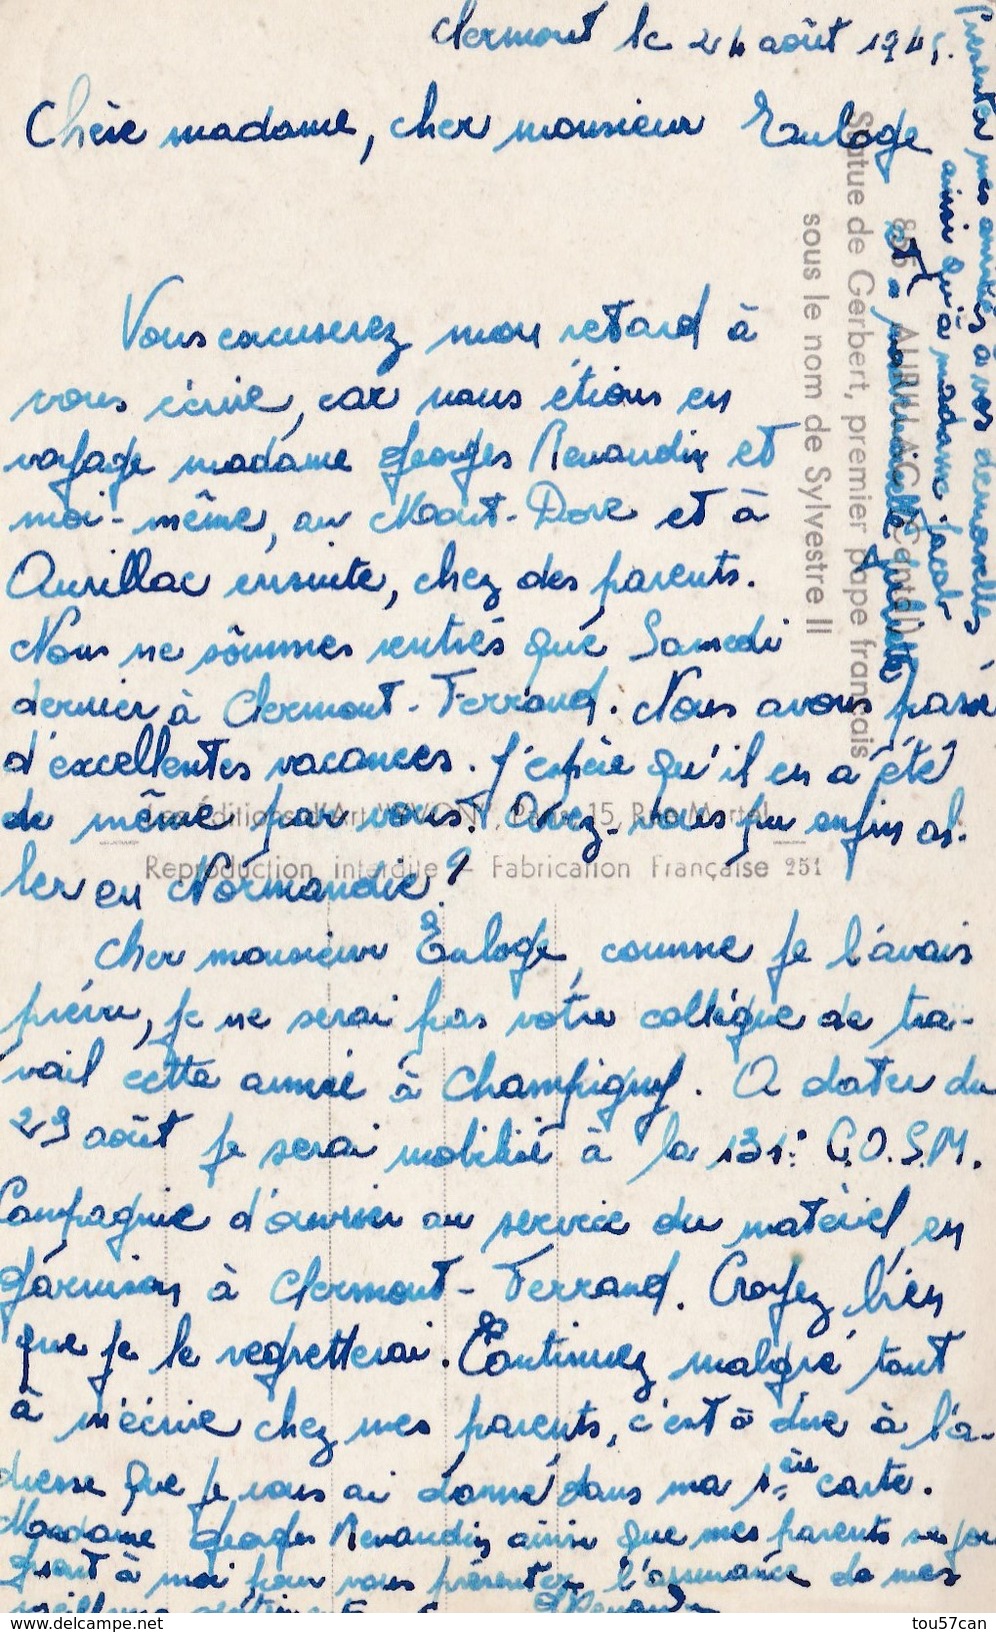 Clermont le 24 août 1945.
Chère madame, cher monsieur Euloge
Vous excuserez mon retard à
vous écrire, car nous étions en
voyage madame Georges Renaudin et
moi-même, au Mont-Dore et à
Aurillac ensuite, chez des parents.
Nous ne sommes rentrés que Samedi
dernier à Clermont-Ferrand. Nous avons passé
d'excellentes vacances. J'espère qu'il en a été
de même pour vous. Avez-vous pu enfin al-
ler en Normandie?
Cher monsieur Euloge, comme je l'avais
prévu, je ne serai pas votre collègue de tra-
vail cette année à Champigny. A dater du
29 août je serai mobilisé à la 131e C.O.S.M.
Compagnie d'ouvrier au service du matériel, en
garnison à Clermont-Ferrand. Croyez bien
que je le regretterai. Continuez malgré tout
à m'écrire chez mes parents, c'est à dire à l'a-
dresse que je vous ai donné dans ma 1ère carte.
Madame Georges Renaudin ainsi que mes parents se joi
gnent à moi pour vous présenter l'assurance de mes
meilleurs sentiments G Renaudin
Présenter mes amitiés à vos demoiselles
ainsi qu'à madame Jacob
et à mademoiselle Juliette
855 AURILLAC (Cantal)
Statue de Gerbert, premier pape français
sous le nom de Sylvestre II
Les Éditions d'Art "YVON", Paris-15, Rue Martel
Reproduction interdite – Fabrication Française 251
www.delcampe.net
tou57can